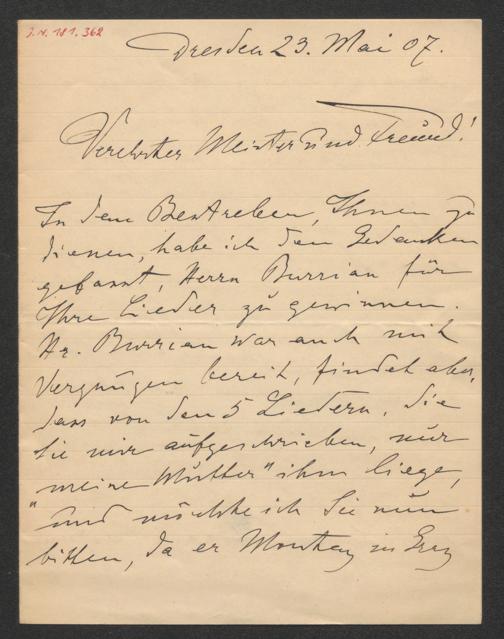 J.N. 181.362
Dresden 23. Mai 07.
Verehrter Meister und Freund!
In dem Bestreben, Ihnen zu
dienen, habe ich den Gedanken
gefasst, Herrn Burrian für
Ihre Lieder zu gewinnen.
Hr. Burrian war auch mit
Vergnügen bereit, findet aber,
dass von den 5 Liedern, die
Sie mir aufgeschrieben, nur
"meine Mutter" ihm liege,
und möchte ich Sie nun
bitten, da er Montag in Graz